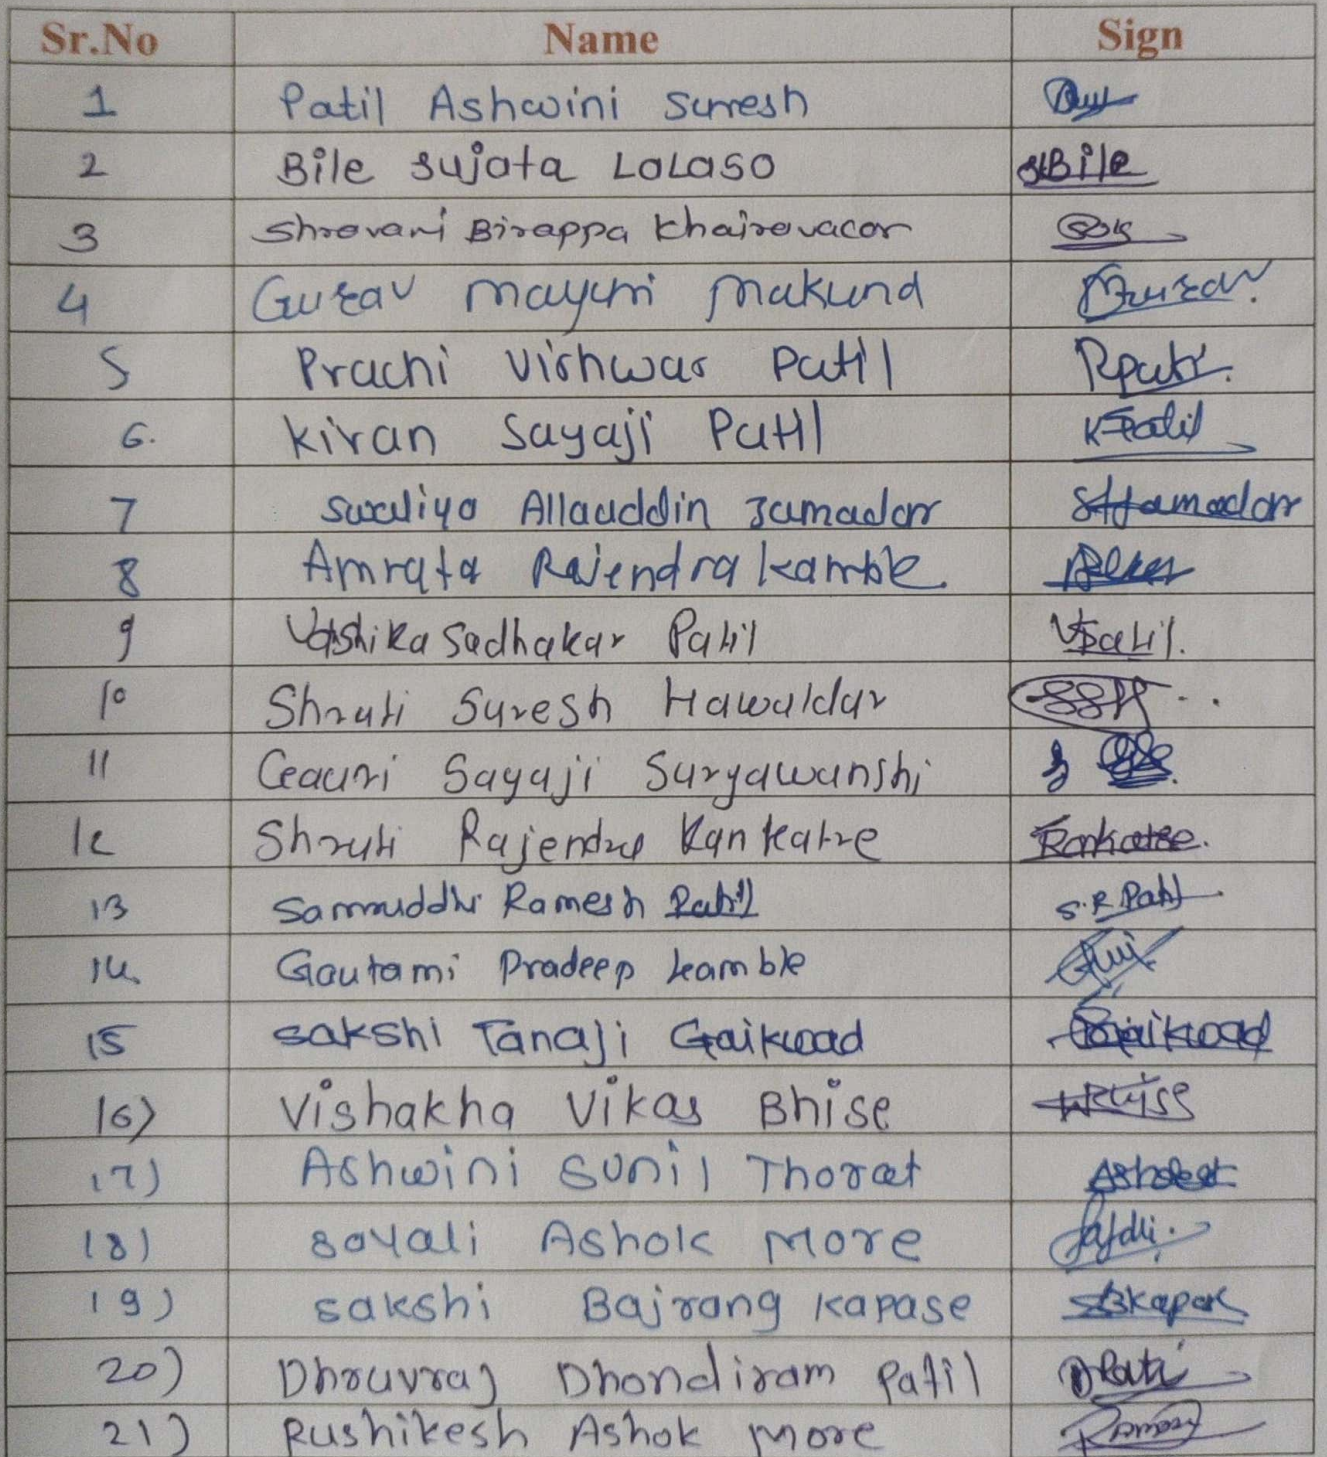 Sr.No Name Sign
1 Patil Ashwini Suresh
2 Bile Sujata Lalaso SLBile
3 Shravani Birappa Khairavacar
4 Gurav Mayuri Mukund Gurav.
5 Prachi Vishwas Patil PPatil.
6. Kiran Sayaji Patil KSPatil
7 Suraliya Allauddin Jamadar SAJamadar
8 Amrata Rajendra Kamble
9 Vashika Sadhakar Patil VSPatil.
10 Shruti Suresh Hawaldar SSH
11 Geauri Sayaji Suryawanshi
12 Shruti Rajendra Kankatre Kankatre.
13 Sammuddhi Ramesh Patil S.R Patil
14 Gautami Pradeep Kamble
15 Sakshi Tanaji Gaikwad Gaikwad
16) Vishakha Vikas Bhise
17) Ashwini Sunil Thorat
18) Sayali Ashok More
19) Sakshi Bajrang Kapase SBKapase
20) Dhruvraj Dhondiram Patil DPatil
21) Rushikesh Ashok More